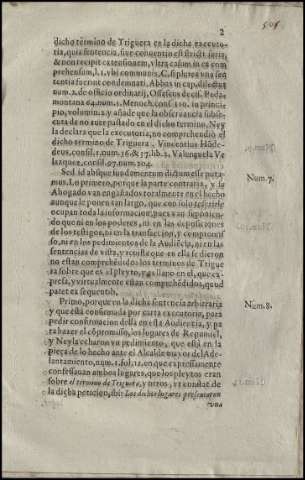 2
dicho término de Triguera en la dicha executo-
ria, quia sententia, sive conventio est stricti juris,
& non recipit extensionem, ultra casum in ea com
prehensum, l. 1. ubi communis, C. si plures una sen
tentia fuerint condemnati. Abbas in cap. dilectus
num. 2. de officio ordinarij. Offascus decis. Pedas
montana 64. num. 1. Menoch. consil. 100. in princi
pio, volum. 2. y añade que la observancia subse-
cuta de no aver pastado en el dicho termino, Ney
la declara que la executoria, no comprehendió el
dicho termino de Triguera. Vincentius Hóde-
deus, consil. 1. num. 36. & 37. lib. 2. Valençuela Ve
lazquez, consil. 97. num. 204.
Sed id absque iusdementum dictum esse puta-
mus. Lo primero, porque la parte contraria, y su
Abogado van engañados totalmente en el hecho
aunque le ponen tan largo, que con solo referirle
ocupan toda la informacion, pues van suponien-
do que ni en los poderes, ni en las exposiciones
de los testigos, ni en la transaccion, y compromis-
so, ni en los pedimientos de la Audiécia, ni en las
sentencias de vista, y revista que en ella se dieron
no estan comprehédidos los terminos de Trigue
ra sobre que es el pleyto, y casi lo en el, que expre-
sa, y virtualmente están comprehédidos, quod
patet ex sequentib.
Primo, porque en la dicha sentencia arbitraria
y que està confirmada por carta executoria, para
pedir confirmacion della en esta Audiencia, y pa
ra hazer el cōpromisso, los lugares de Requeniel,
y Neyla echaron va pedimiento, que està en la
pieça de lo hecho ante el Alcalde mayor del Ade-
lantamiento, num. 1. fol. 12. en que expressamente
confessaron ambos lugares, que los pleytos eran
sobre el termino de Triguera, y otros, ut constat de
la dicha peticion, ibi: Los dichos lugares presentaron
una
Num. 7.
Num. 8.